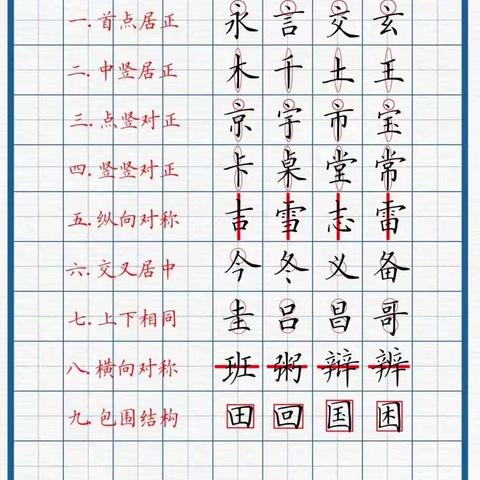 一.首点居正 永 言 交 玄
二.中竖居正 木 千 土 王
三.点竖对正 京 宇 市 宝
四.竖竖对正 卡 桌 堂 常
五.纵向对称 吉 雪 志 雷
六.交叉居中 今 冬 义 备
七.上下相同 圭 吕 昌 哥
八.横向对称 班 粥 辩 辨
九.包围结构 田 回 国 困